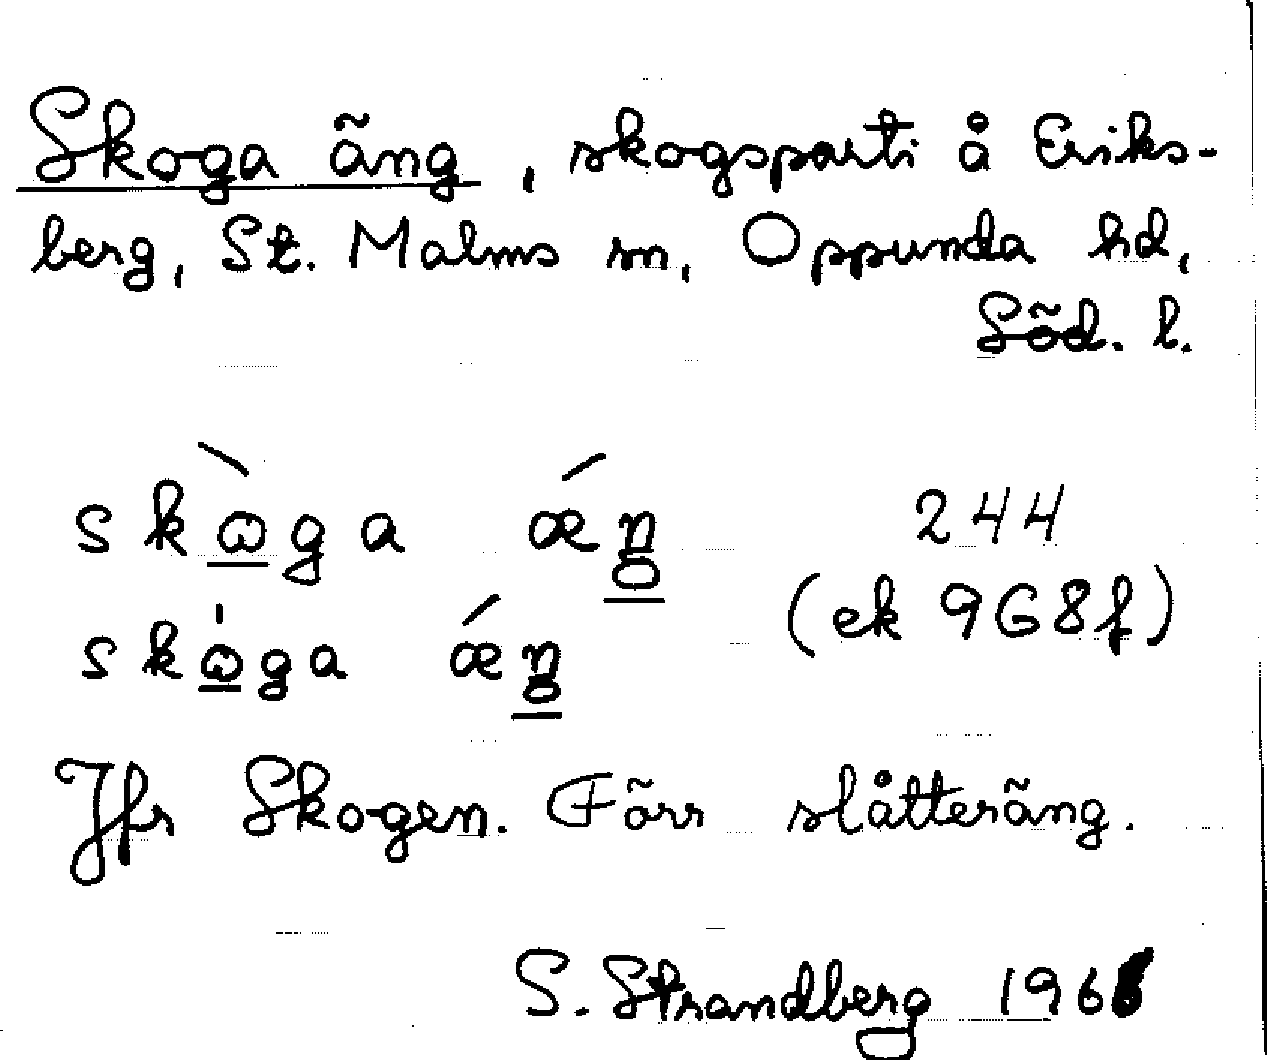 Skoga äng, skogsparti å Eriks-
berg, St. Malms sn, Oppunda hd,
Söd. l.
skὼ̲ga ǽŋ̲ 244
skὼ̲ga ǽŋ̲ (ek 9G8f)
Jfr Skogen. Förr slåtteräng.
S. Strandberg